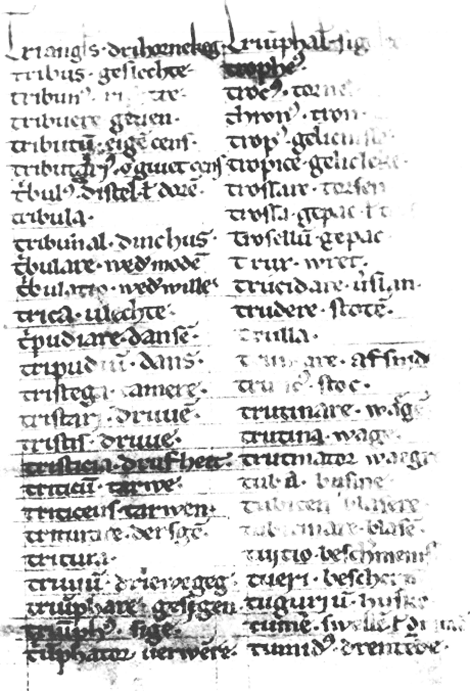 Triangls · drihornekeg
tribus · geslechte
tribun9
tribuere geuen ·
tributū · eigē cens ·
tributari9
t̄bul9 · distel ł dorē ·
tribula ·
tribunal · dinchus ·
t̄bulare · wed'modē
t̄bulatio · wed'wille
trica · ulechte ·
t̄pudiare · dansē ·
tripudiū · dans ·
tristega camere ·
tristari · druuē ·
tristis · druue ·
tristicia · drufheit ·
triticū · tarwe ·
triticeus · tarwen ·
triturare · dersgē ·
tritura ·
triuiū · drierwegeg ·
triūphare · gesigen ·
triūph9 · sige ·
t'ūphator · uerwēre ·
triūphal
trophe9
troc9
thron9 · tron
trop9
tropice · gelicleke ·
trossare · torsen
trossa · gepac ł
trosellū · gepac
Trux · wret ·
trucidare ·
trudere · stotē ·
trulla ·
stoc ·
trutinare · wagē
trutina · wage
trutinator waegre
tuba · busine ·
blasere
blasē ·
tuitio · beschirmenis
tueri · bescher
tuguriū · huske
tumē · swelle
tumid9 ·